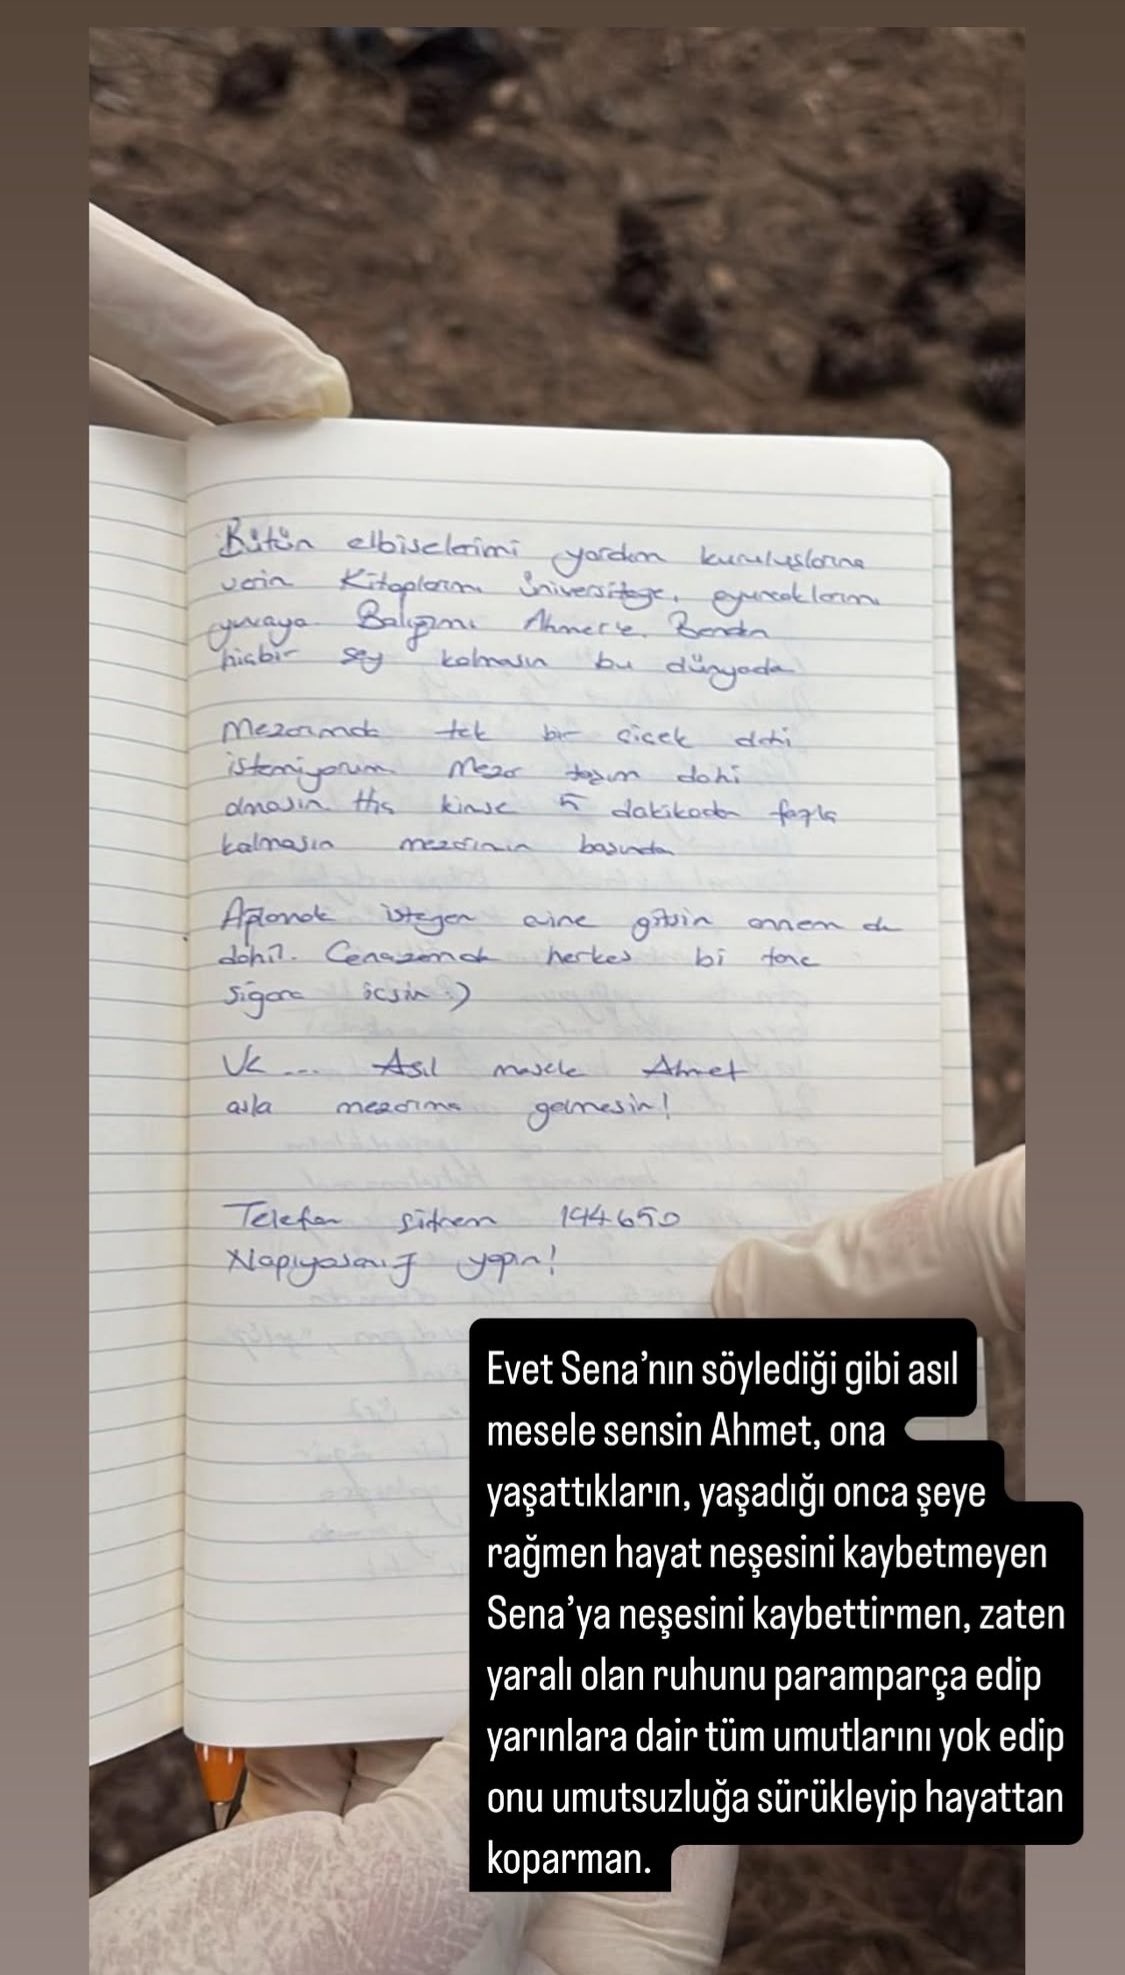 Bütün elbiselerimi yardım kuruluşlarına
verin Kitaplarım üniversiteye, oyuncaklarımı
yuvaya. Balığımı Ahmet'e. Benden
hiçbir şey kalmasın bu dünyada
Mezarımda tek bir çiçek dahi
istemiyorum. Mezar taşım dahi
olmasın. Hiç kimse 5 dakikadan fazla
kalmasın mezarımın başında
Ağlamak isteyen evine gitsin annem de
dahil. Cenazemde herkes bi tane
sigara içsin :)
Ve... Asıl mesele Ahmet
asla mezarıma gelmesin!
Telefon şifrem 144650
Napıyosanız yapın!
Evet Sena’nın söylediği gibi asıl
mesele sensin Ahmet, ona
yaşattıkların, yaşadığı onca şeye
rağmen hayat neşesini kaybetmeyen
Sena’ya neşesini kaybettirmen, zaten
yaralı olan ruhunu paramparça edip
yarınlara dair tüm umutlarını yok edip
onu umutsuzluğa sürükleyip hayattan
koparman.